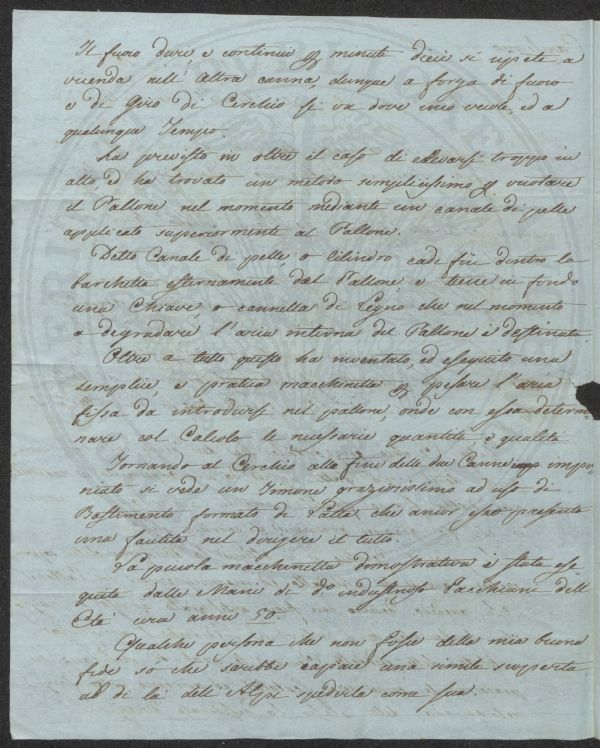 Il fuoco dura, e continui p minuti dieci si ripete a
vicenda nell' altra canna, dunque a forza di fuoco
e di Giro di Cerchio si va dove uno vuole, ed a
qualunque Tempo.
Ha previsto in oltre il caso di elevarsi troppo in
alto ed ha trovato un metodo simplicissimo p vuotare
il Pallone nel momento mediante un canale di pelle
applicato superiormente al Pallone.
Detto Canale di pelle, o Cilindro cade fin dentro la
barchetta esternamente dal Pallone, e tiene in fondo
una Chiave, o cannella di Legno che nel momento
a degradare l'aria interna del Pallone è destinata
Oltre a tutto questo ha inventato, ed eseguito una
semplice, e pratica macchinetta p pesare l'aria
fissa da introdursi nel pallone, onde con essa determi-
nare col Calcolo le necessarie quantità, e qualità
Tornando al Cerchio alla fine delle due Canne impo-
niato si vede un Timone graziosissimo ad uso di
Bastimento formato di Latta che ancor esso presenta
una facilità nel dirigere il tutto.
La piccola macchinetta domostrativa è stata ese
guita dalle Mani di do industrioso Pacchiani dell
Età ora anni 50.
Qualche persona che non fosse della mia buona
fede so che sarebbe capace una simile scoperta
di là dell Alpi spedirla come sua.